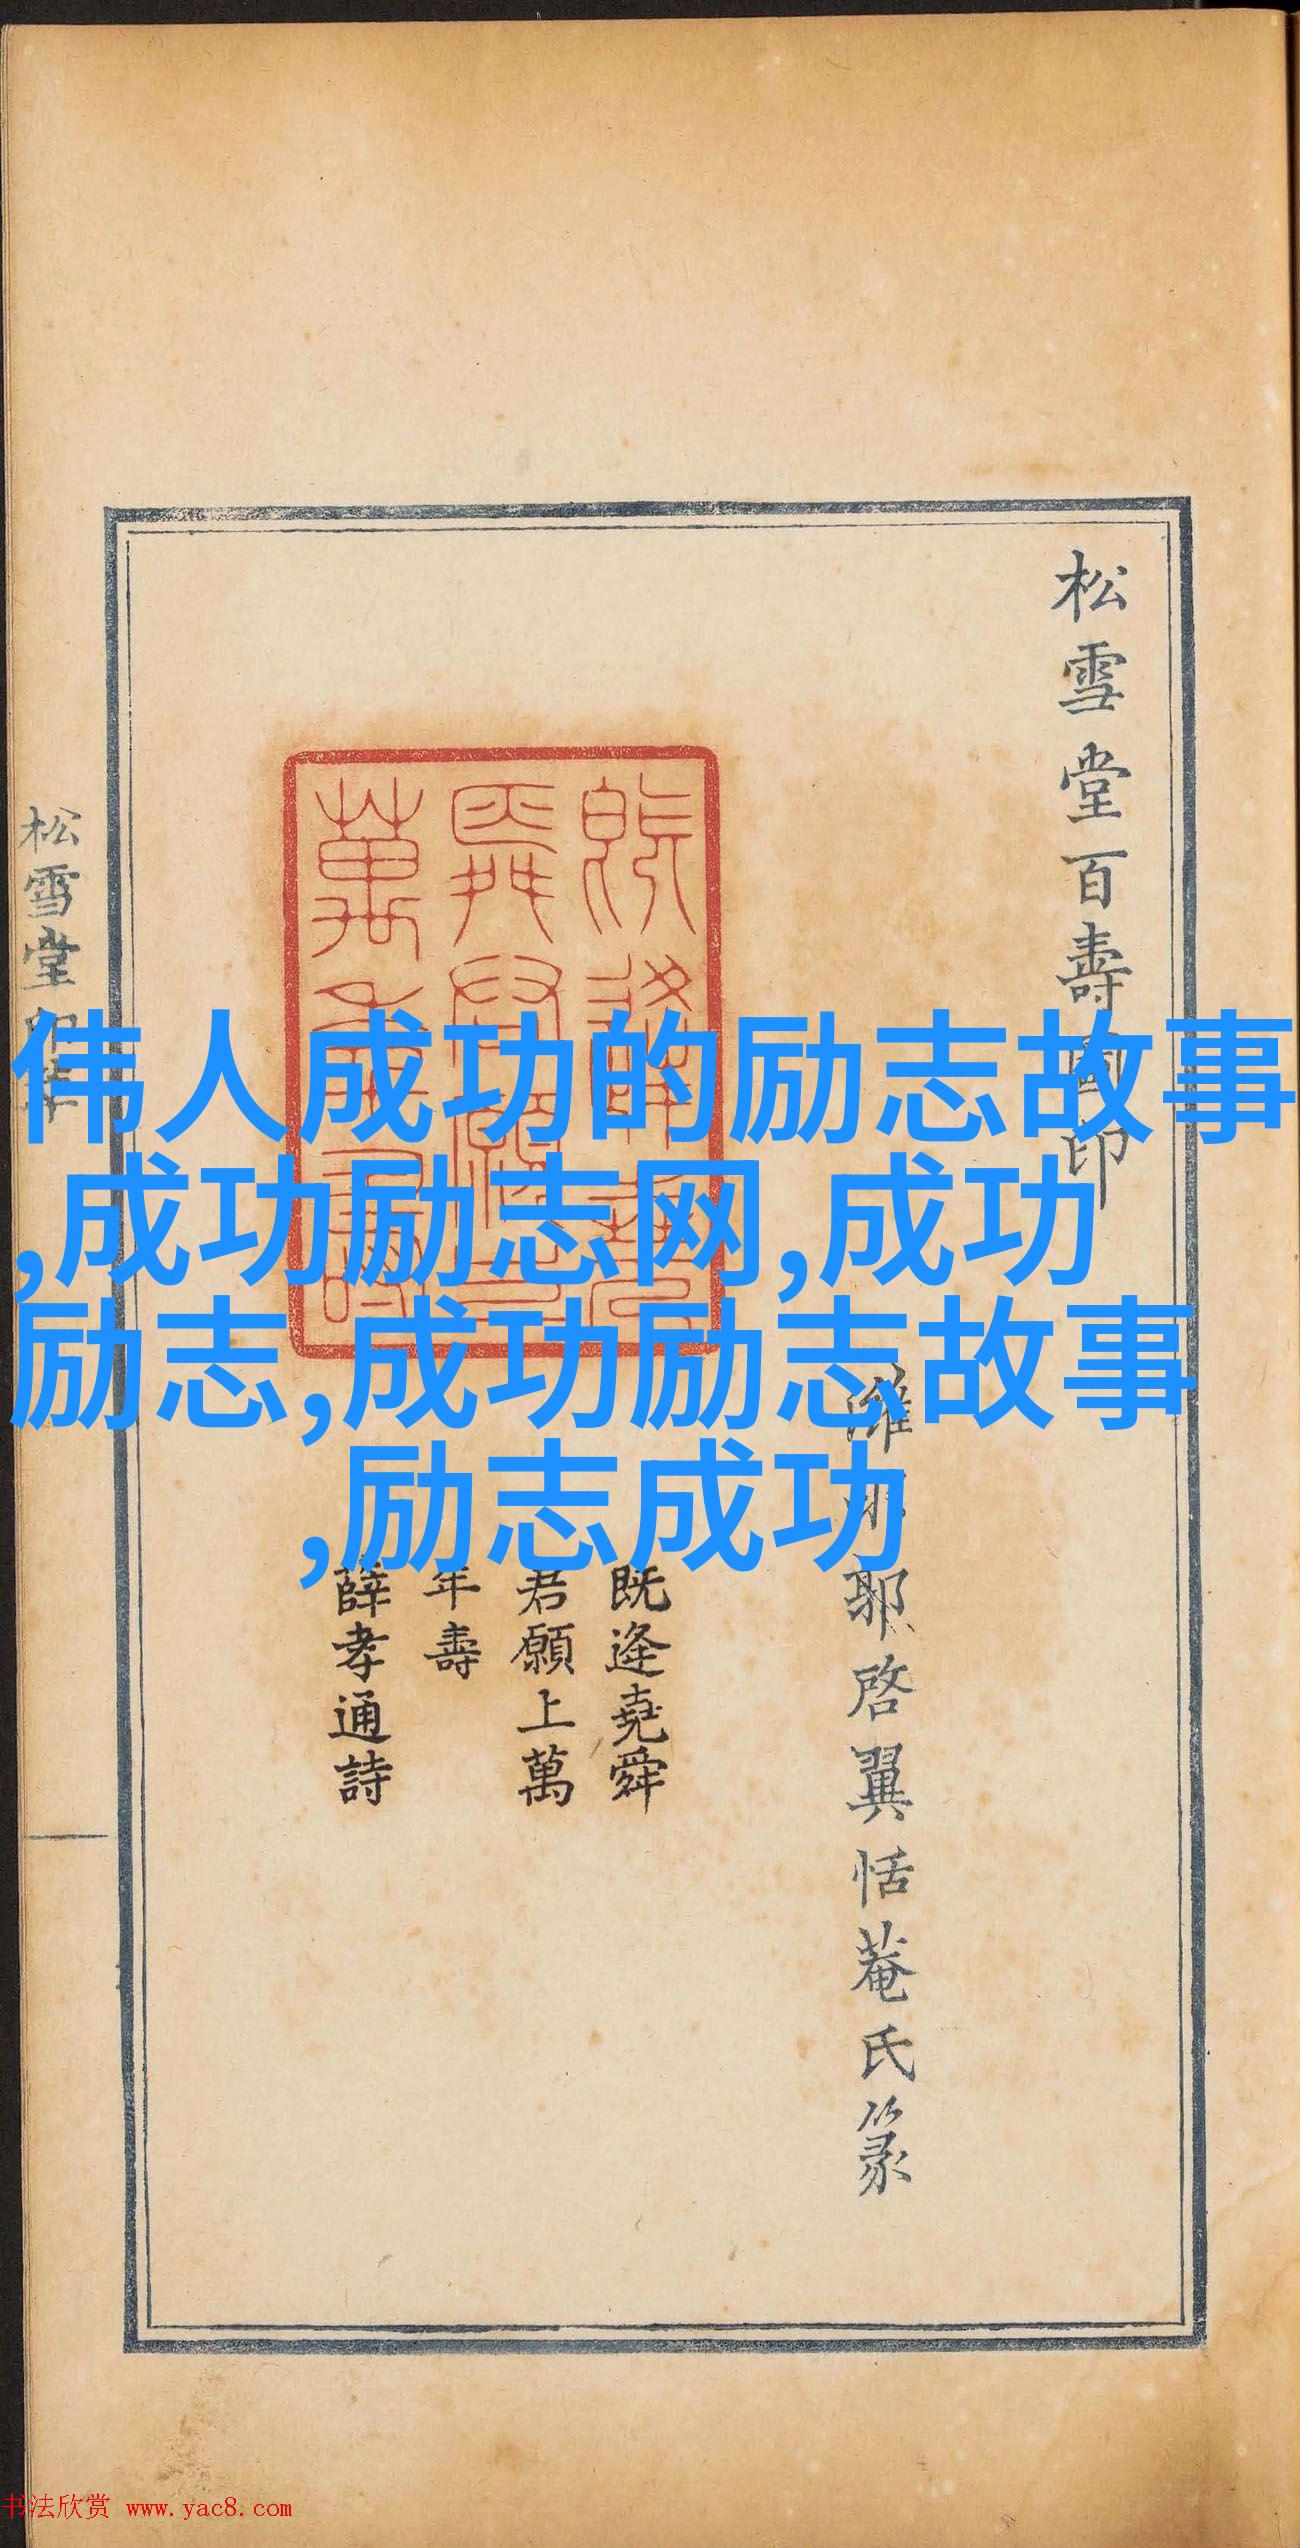 松雪堂百壽圖印
濰水耶啓翼恬菴氏篆
既逢堯舜
君願上萬
年壽
薛孝通詩
松雪堂印萃
伟人成功的励志故事
,成功励志网,成功
励志,成功励志故事
,励志成功
书法欣赏 www.yac8.com